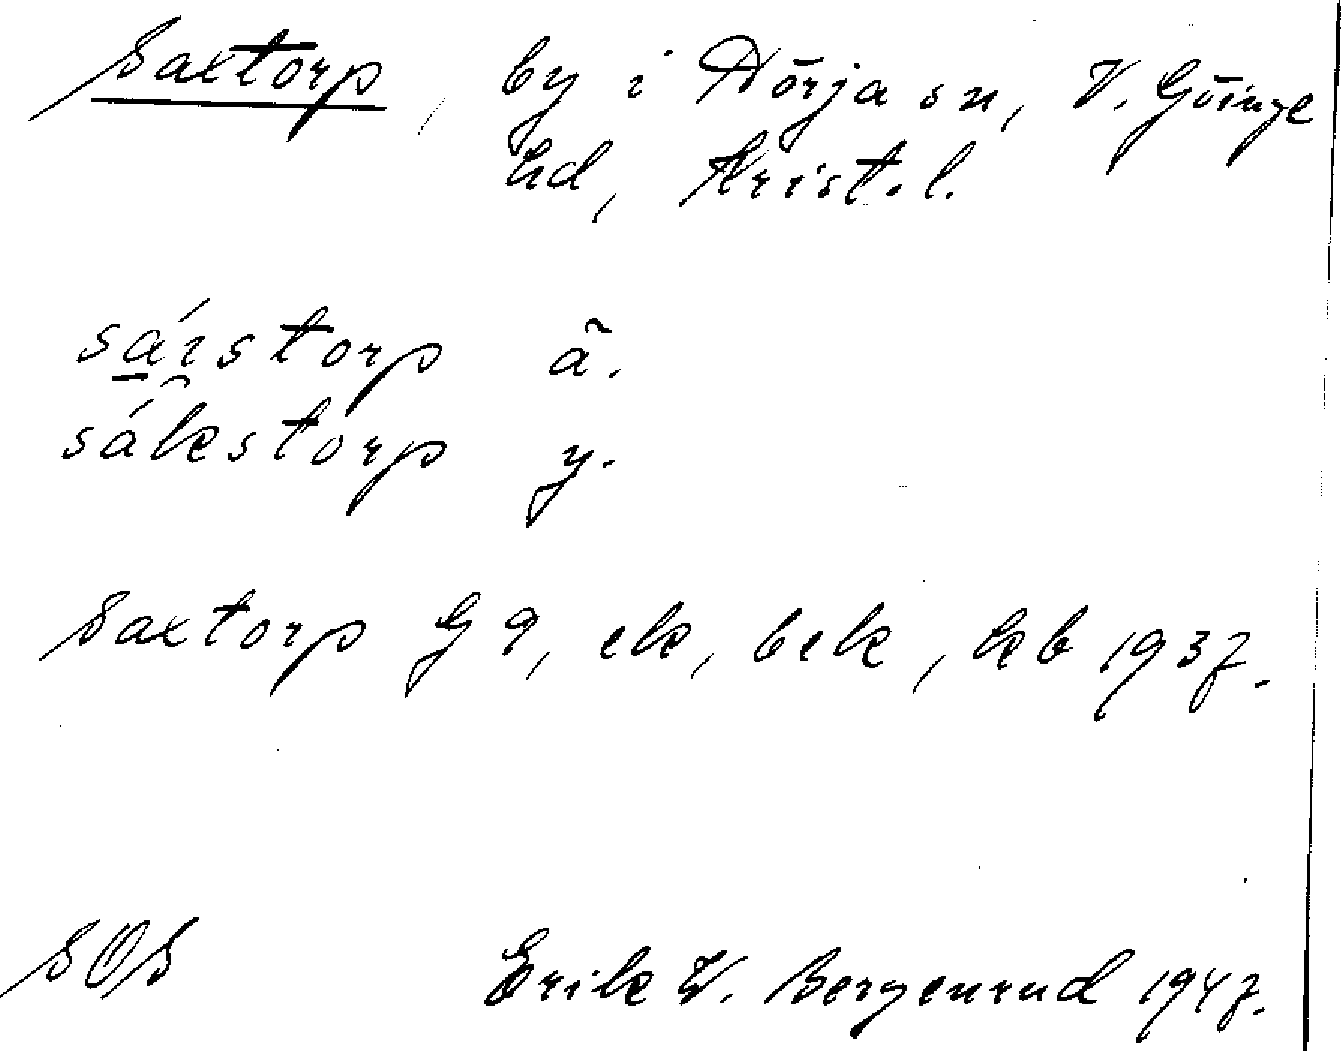 Saxtorp, by i Nörja sn, V. Göinge
hd, Krist. l.
sárstorp ä.
sákstorp y.
Saxtorp G 9, ek, bek, kb 1937.
SOS Erik W. Bergenrud 1947.